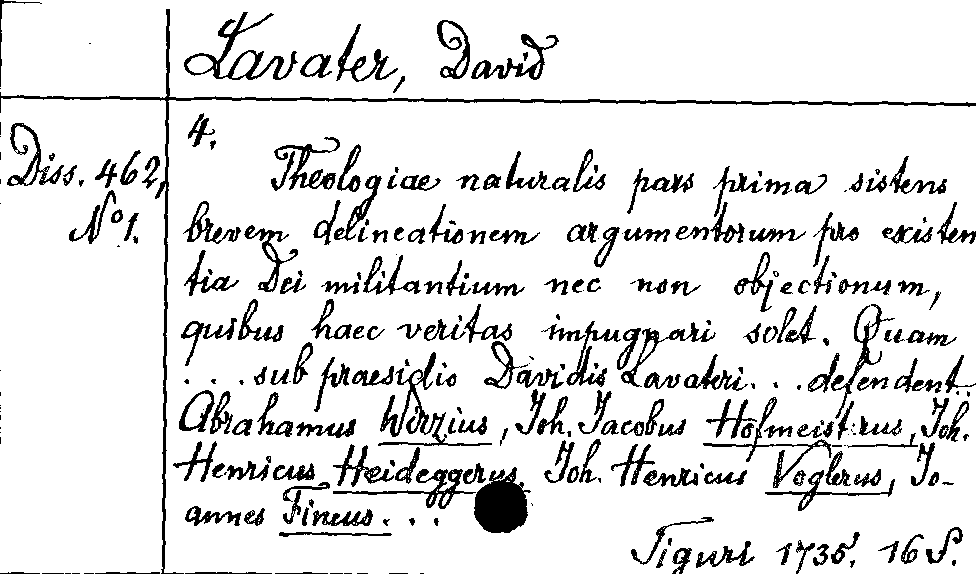 Lavater, David
Diss. 462,
No 1.
4.
Theologiae naturalis pars prima sistens
brevem delineationem argumentorum pro existen
tia Dei militantium nec non objectionum,
quibus haec veritas impugnari solet. Quam
. . . sub praesidio Davidis Lavateri . . . defendent . .
Abrahamus Wirzius, Joh. Jacobus Hofmeisterus, Joh.
Henricus Heideggerus, Joh. Henricus Voglerus, Jo-
annes Fineus . . .
Tiguri 1735. 16 S.